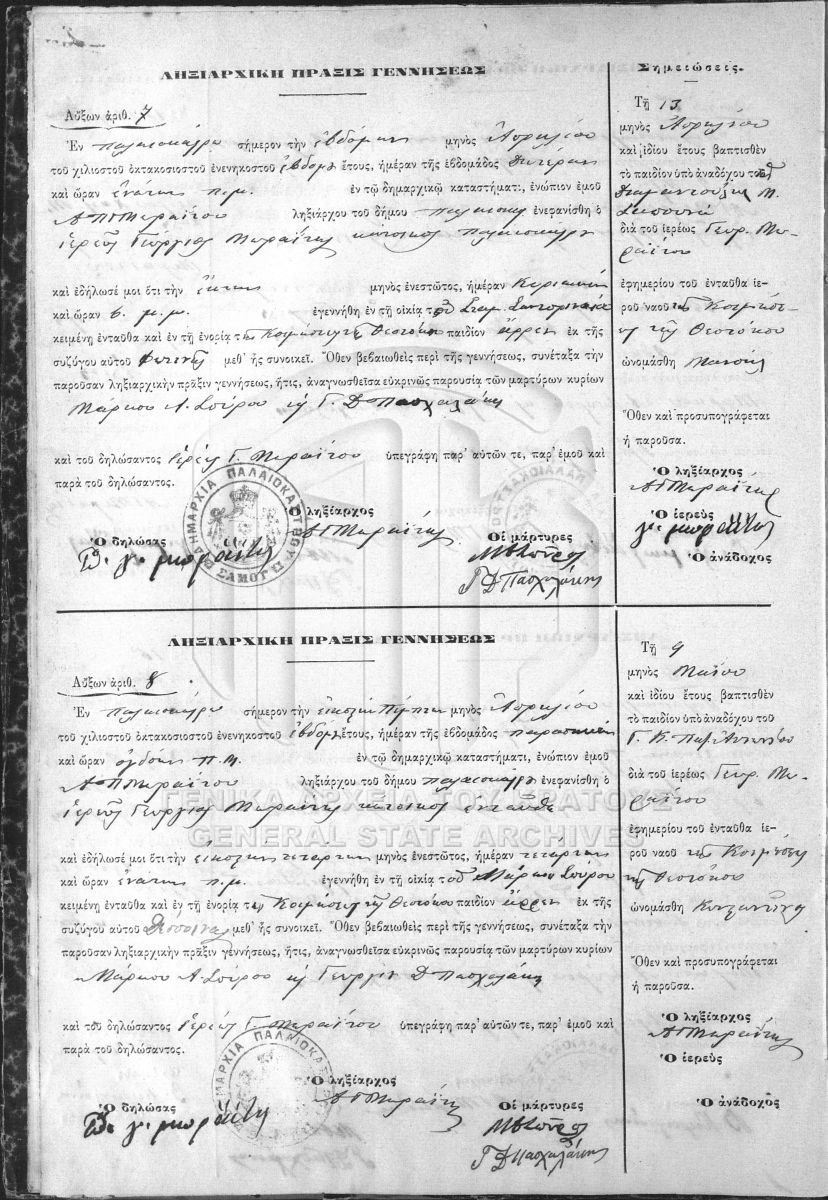 ΛΗΞΙΑΡΧΙΚΗ ΠΡΑΞΙΣ ΓΕΝΝΗΣΕΩΣ
Αὔξων ἀριθ. 7
Ἐν Παλαιοκάστρῳ σήμερον τὴν ἑβδόμην μηνὸς Ἀπριλίου
τοῦ χιλιοστοῦ ὀκτακοσιοστοῦ ἐνενηκοστοῦ ἑβδόμου ἔτους, ἡμέραν τῆς ἑβδομάδος Δευτέραν
καὶ ὥραν ἐνάτην π.μ. ἐν τῷ δημαρχικῷ καταστήματι, ἐνώπιον ἐμοῦ
ληξιάρχου τοῦ δήμου ἐνεφανίσθη ὁ
ἱερεὺς Γεώργιος Μωραΐτης κάτοικος Παλαιοκάστρου
καὶ ἐδήλωσέ μοι ὅτι τὴν ἕκτην μηνὸς ἐνεστῶτος, ἡμέραν Κυριακὴν
καὶ ὥραν 6. μ.μ. ἐγεννήθη ἐν τῇ οἰκίᾳ τοῦ Σταμ.
κειμένῃ ἐνταῦθα καὶ ἐν τῇ ἐνορίᾳ τῆς Κοιμήσεως τῆς Θεοτόκου παιδίον ἄρρεν ἐκ τῆς
συζύγου αὐτοῦ Φωτεινῆς μεθ᾽ ἧς συνοικεῖ. Ὅθεν βεβαιωθεὶς περὶ τῆς γεννήσεως, συνέταξα τὴν
παροῦσαν ληξιαρχικὴν πρᾶξιν γεννήσεως, ἥτις, ἀναγνωσθεῖσα εὐκρινῶς παρουσίᾳ τῶν μαρτύρων κυρίων
Μάρκου Λ. Σπύρου κ Γ. Δ Πασχαλάκη
καὶ τοῦ δηλώσαντος ἱερέως Γ. Μωραΐτου ὑπεγράφη παρ᾽ αὐτῶν τε, παρ᾽ ἐμοῦ καὶ
παρὰ τοῦ δηλώσαντος.
ΔΗΜΑΡΧΙΑ ΠΑΛΑΙΟΚΑΣΤΡΟΥ
ΣΑΜΟΥ
Ὁ ληξίαρχος
Ὁ δηλώσας
Οἱ μάρτυρες
Γ Δ Πασχαλάκης
Σημειώσεις.
Τῇ 13
μηνὸς Ἀπριλίου
καὶ ἰδίου ἔτους βαπτισθὲν
τὸ παιδίον ὑπὸ ἀναδόχου τοῦ
διὰ τοῦ ἱερέως Γεωρ. Μω-
ραΐτου
ἐφημερίου τοῦ ἐνταῦθα ἱε-
ροῦ ναοῦ τῆς Κοιμήσε-
ως τῆς Θεοτόκου
ὠνομάσθη
Ὅθεν καὶ προσυπογράφεται
ἡ παροῦσα.
Ὁ ληξίαρχος
Ὁ ἱερεὺς
Ὁ ἀνάδοχος
ΛΗΞΙΑΡΧΙΚΗ ΠΡΑΞΙΣ ΓΕΝΝΗΣΕΩΣ
Αὔξων ἀριθ. 8
Ἐν Παλαιοκάστρῳ σήμερον τὴν εἰκοστὴν πέμπτην μηνὸς Ἀπριλίου
τοῦ χιλιοστοῦ ὀκτακοσιοστοῦ ἐνενηκοστοῦ ἑβδόμου ἔτους, ἡμέραν τῆς ἑβδομάδος παρασκευὴν
καὶ ὥραν ὀγδόην π.μ. ἐν τῷ δημαρχικῷ καταστήματι, ἐνώπιον ἐμοῦ
ληξιάρχου τοῦ δήμου Παλαιοκάστρου ἐνεφανίσθη ὁ
ἱερεὺς Γεώργιος Μωραΐτης κάτοικος ἐνταῦθα
ΓΕΝΙΚΑ ΑΡΧΕΙΑ ΤΟΥ ΚΡΑΤΟΥΣ
GENERAL STATE ARCHIVES
καὶ ἐδήλωσέ μοι ὅτι τὴν εἰκοστὴν τετάρτην μηνὸς ἐνεστῶτος, ἡμέραν τετάρτην
καὶ ὥραν ἐνάτην π.μ. ἐγεννήθη ἐν τῇ οἰκίᾳ τοῦ Μάρκου Σπύρου
κειμένῃ ἐνταῦθα καὶ ἐν τῇ ἐνορίᾳ τῆς Κοιμήσεως τῆς Θεοτόκου παιδίον ἄρρεν ἐκ τῆς
συζύγου αὐτοῦ Δέσποινας μεθ᾽ ἧς συνοικεῖ. Ὅθεν βεβαιωθεὶς περὶ τῆς γεννήσεως, συνέταξα τὴν
παροῦσαν ληξιαρχικὴν πρᾶξιν γεννήσεως, ἥτις, ἀναγνωσθεῖσα εὐκρινῶς παρουσίᾳ τῶν μαρτύρων κυρίων
Μάρκου Λ Σπύρου κ Γεωργίου Δ Πασχαλάκη
καὶ τοῦ δηλώσαντος ἱερέως Γ. Μωραΐτου ὑπεγράφη παρ᾽ αὐτῶν τε, παρ᾽ ἐμοῦ καὶ
παρὰ τοῦ δηλώσαντος.
Ὁ ληξίαρχος
Ὁ δηλώσας
Οἱ μάρτυρες
Γ Δ Πασχαλάκης
Τῇ 9
μηνὸς Μαΐου
καὶ ἰδίου ἔτους βαπτισθὲν
τὸ παιδίον ὑπὸ ἀναδόχου τοῦ
διὰ τοῦ ἱερέως Γεωρ. Μω-
ραΐτου
ἐφημερίου τοῦ ἐνταῦθα ἱε-
ροῦ ναοῦ τῆς Κοιμήσεως
τῆς Θεοτόκου
ὠνομάσθη
Ὅθεν καὶ προσυπογράφεται
ἡ παροῦσα.
Ὁ ληξίαρχος
Ὁ ἱερεὺς
Ὁ ἀνάδοχος